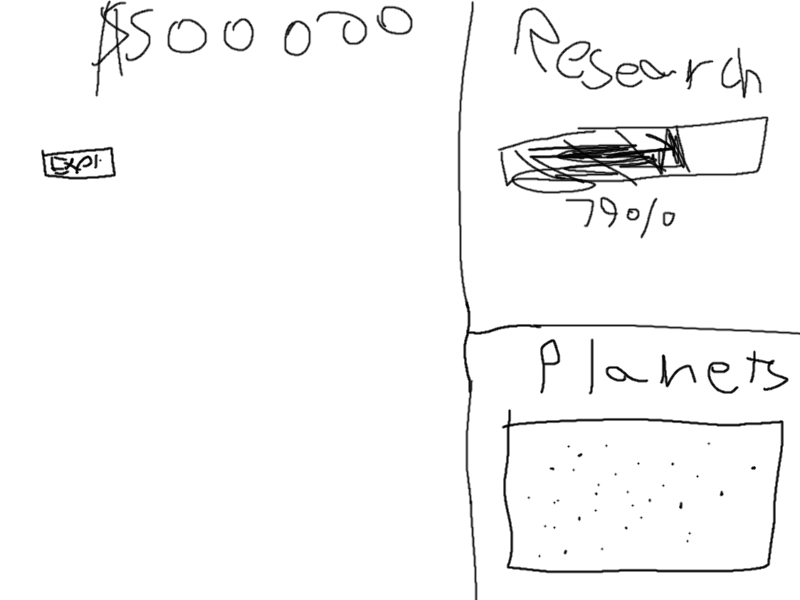 $500000
Expl.
Research
79%
Planets